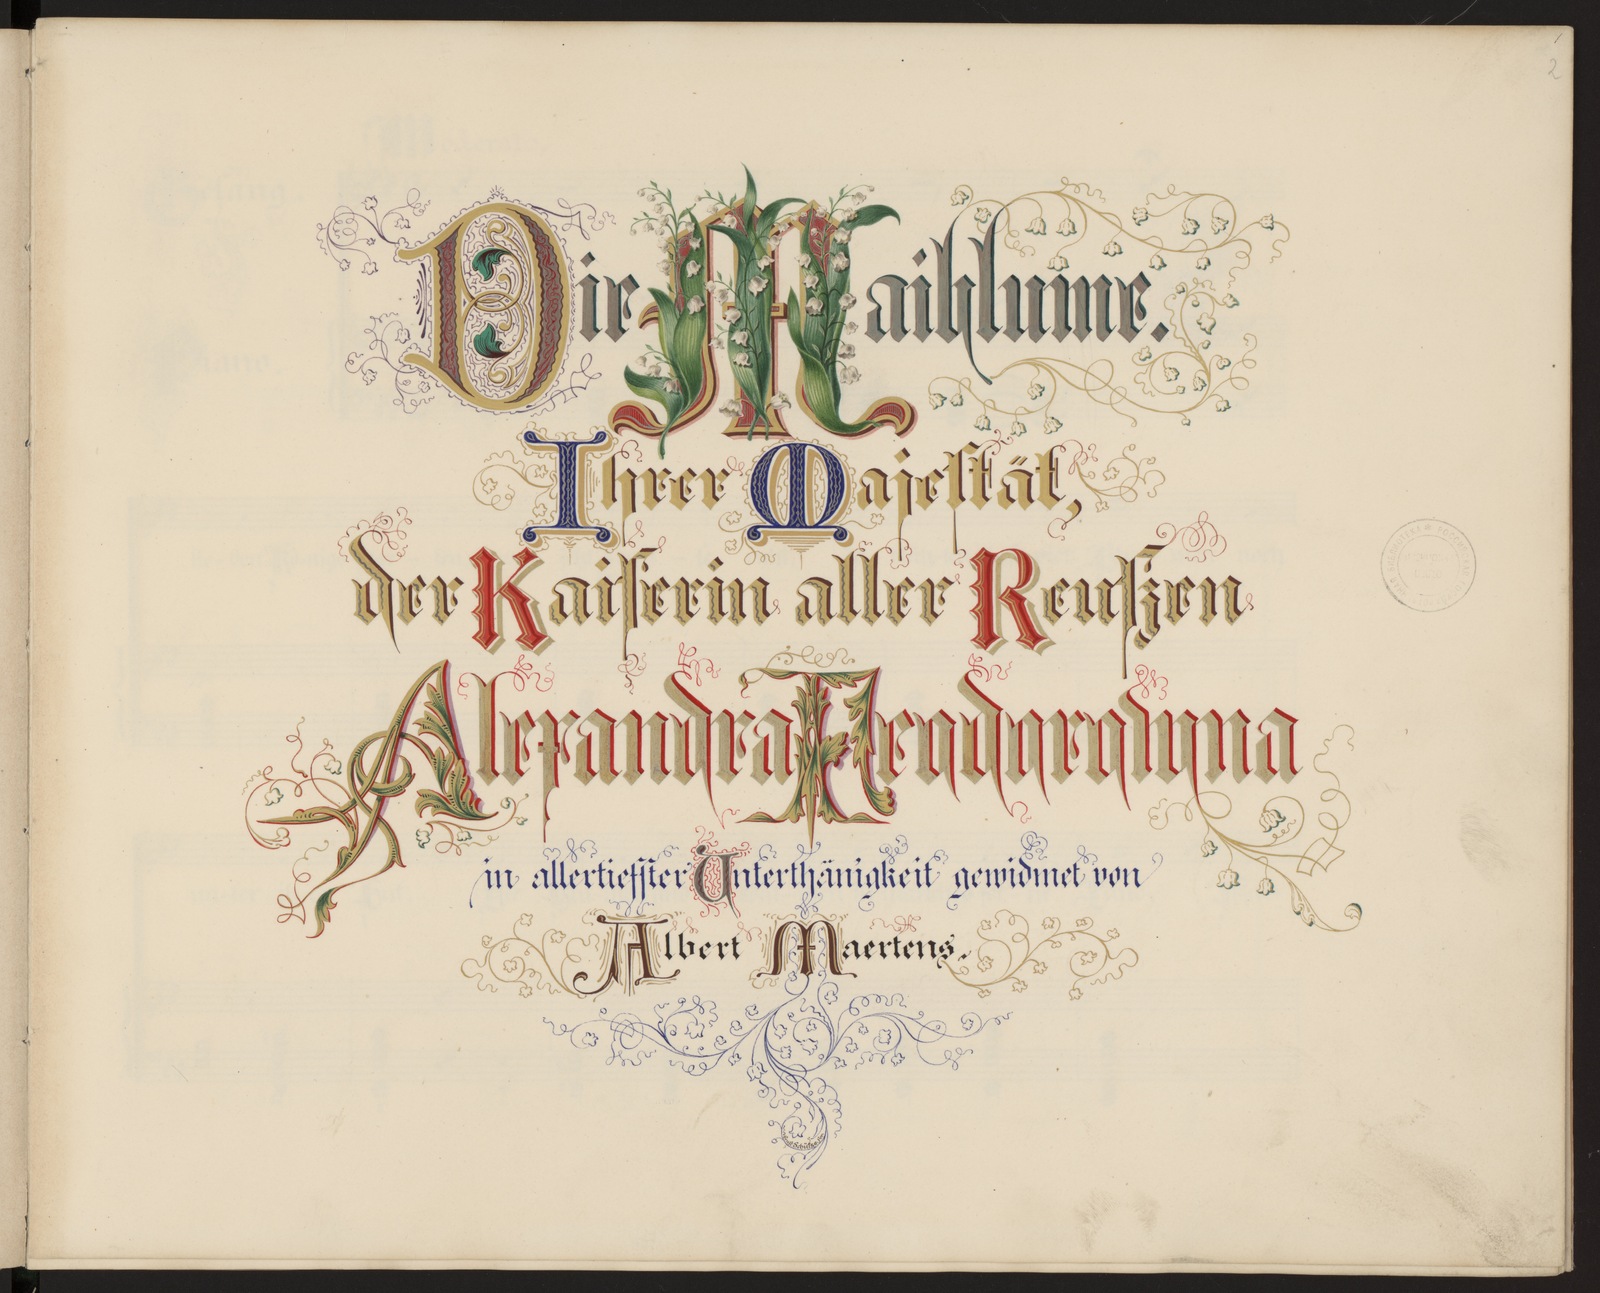 2
Die Maiblume.
Ihrer Majestät,
der Kaiserin aller Reußen
Alexandra Feodorowna
in allertiefster Unterthänigkeit gewidmet von
Albert Maertens.